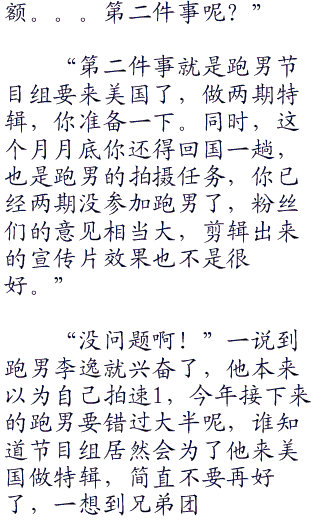 额。。。第二件事呢？”
“第二件事就是跑男节
目组要来美国了，做两期特
辑，你准备一下。同时，这
个月月底你还得回国一趟，
也是跑男的拍摄任务，你已
经两期没参加跑男了，粉丝
们的意见相当大，剪辑出来
的宣传片效果也不是很
好。”
“没问题啊！”一说到
跑男李逸就兴奋了，他本来
以为自己拍速1，今年接下来
的跑男要错过大半呢，谁知
道节目组居然会为了他来美
国做特辑，简直不要再好
了，一想到兄弟团